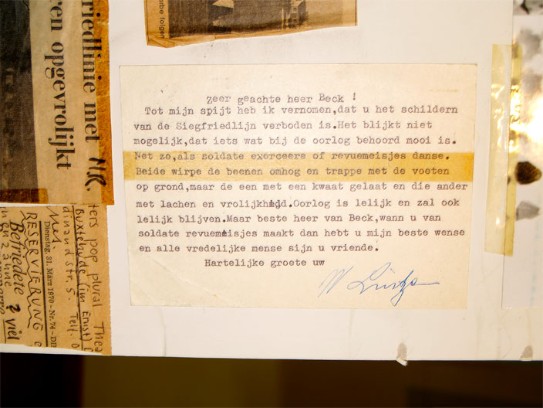 riedlinie met
en opgevrolijkt
N.R.
Zeer geachte heer Beck !
Tot mijn spijt heb ik vernomen,dat u het schilderen
van de Siegfriedlijn verboden is.Het blijkt niet
mogelijk,dat iets wat bij de oorlog behoord mooi is.
Net zo,als soldate exerceere of revuemeisjes danse.
Beide wirpe de beenen omhog en trappe met de voeten
op grond,maar de een met een kwaat gelaat en die ander
met lachen en vrolijkhéjd.Oorlog is lelijk en zal ook
lelijk blijven.Maar beste heer van Beck,wann u van
soldate revuemeisjes maakt dan hebt u mijn beste wense
en alle vredelijke mense sijn u vriende.
Hartelijke groete uw
ters pop plural Thea
Buxtehude (im Ernst)
dinsdstr. 5 Tel.
Dienstag, 31. März 1970 - Nr. 74
RESERVIERUNG
Befriedete
2 viel